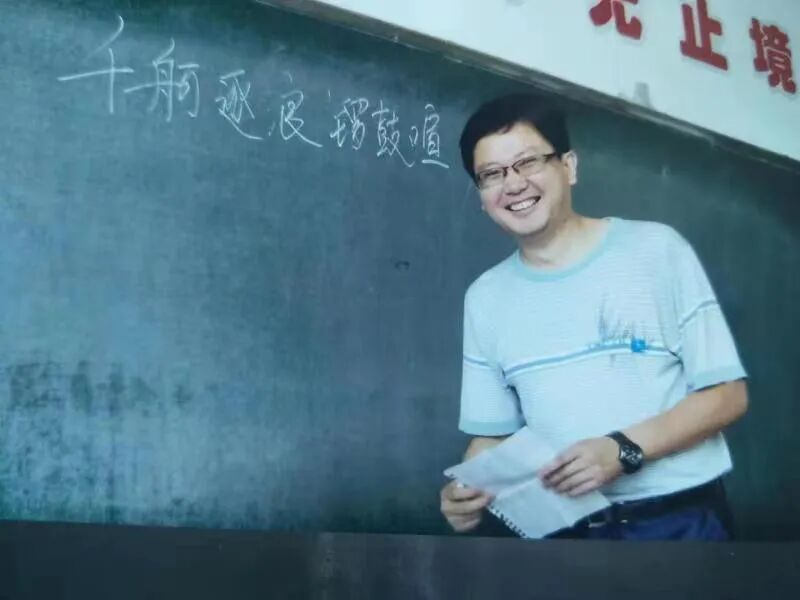 无止境
千舸逐浪锣鼓喧